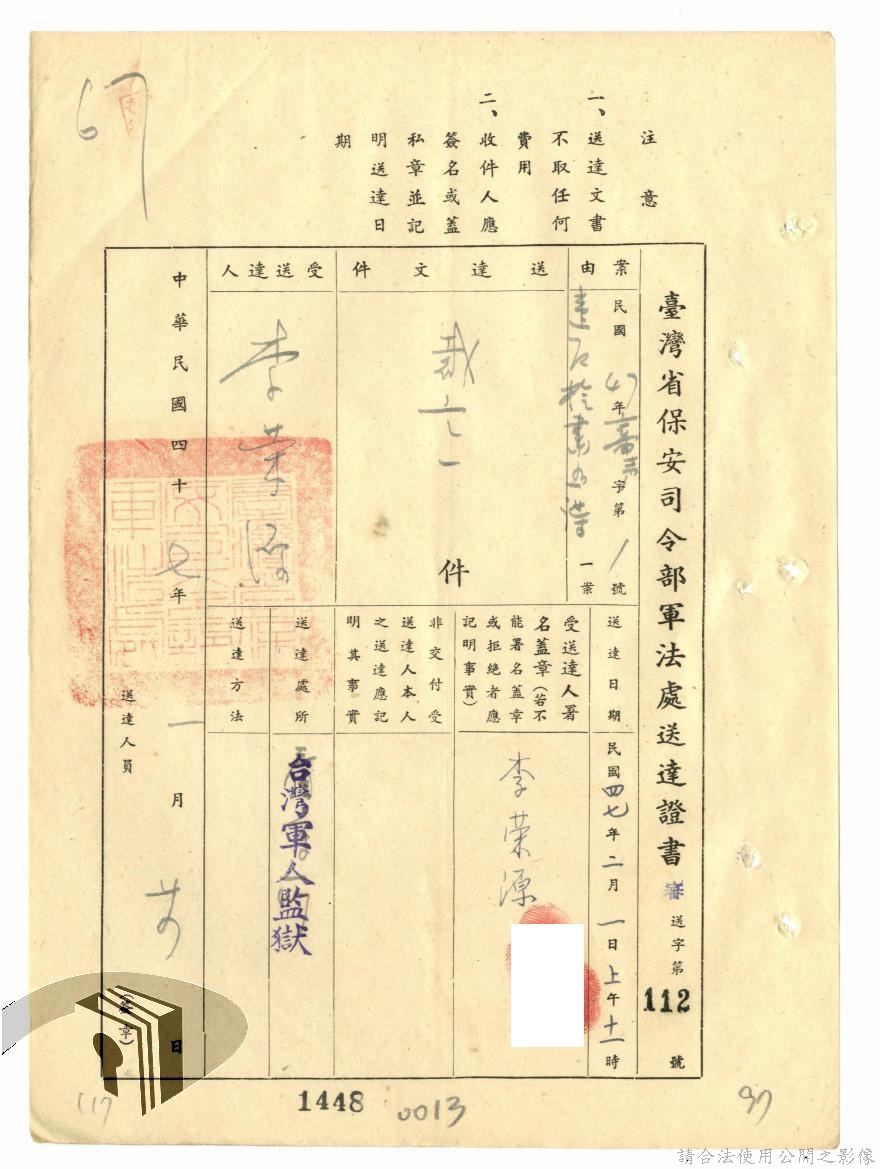 注意
一、送達文書
不取任何
費用
二、收件人應
簽名或蓋
私章並記
明送達日
期
臺灣省保安司令部軍法處送達證書 審 送字第 112 號
案由
民國 47 年 字第 1 號
一案
送達文件
裁 一
件
受送達人
李荣源
送達日期
民國四七年二月一日上午十一時
受送達人署
名蓋章(若不
能署名蓋章
或拒絕者應
記明事實)
李荣源
非交付受
送達人本人
之送達應記
明其事實
送達處所
台灣軍人監獄
送達方法
中華民國四十七年一月 日
送達人員
(簽章)
67
1448
0013
97
117
請合法使用公開之影像